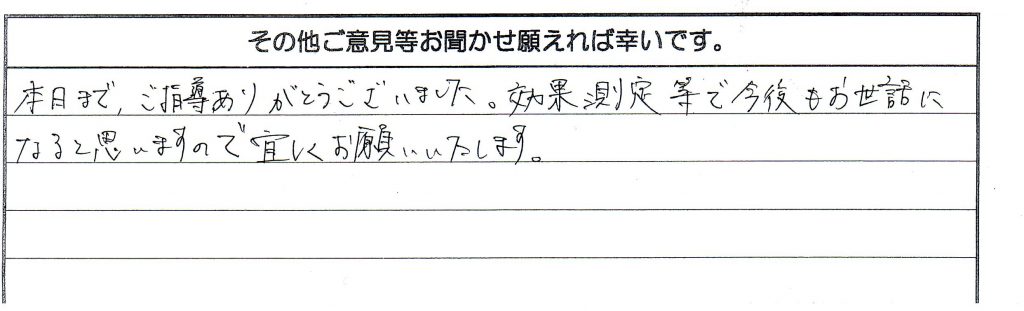 その他ご意見等お聞かせ願えれば幸いです。
本日まで、ご指導ありがとうございました。効果測定等で今後もお世話に
なると思いますので宜しくお願いいたします。